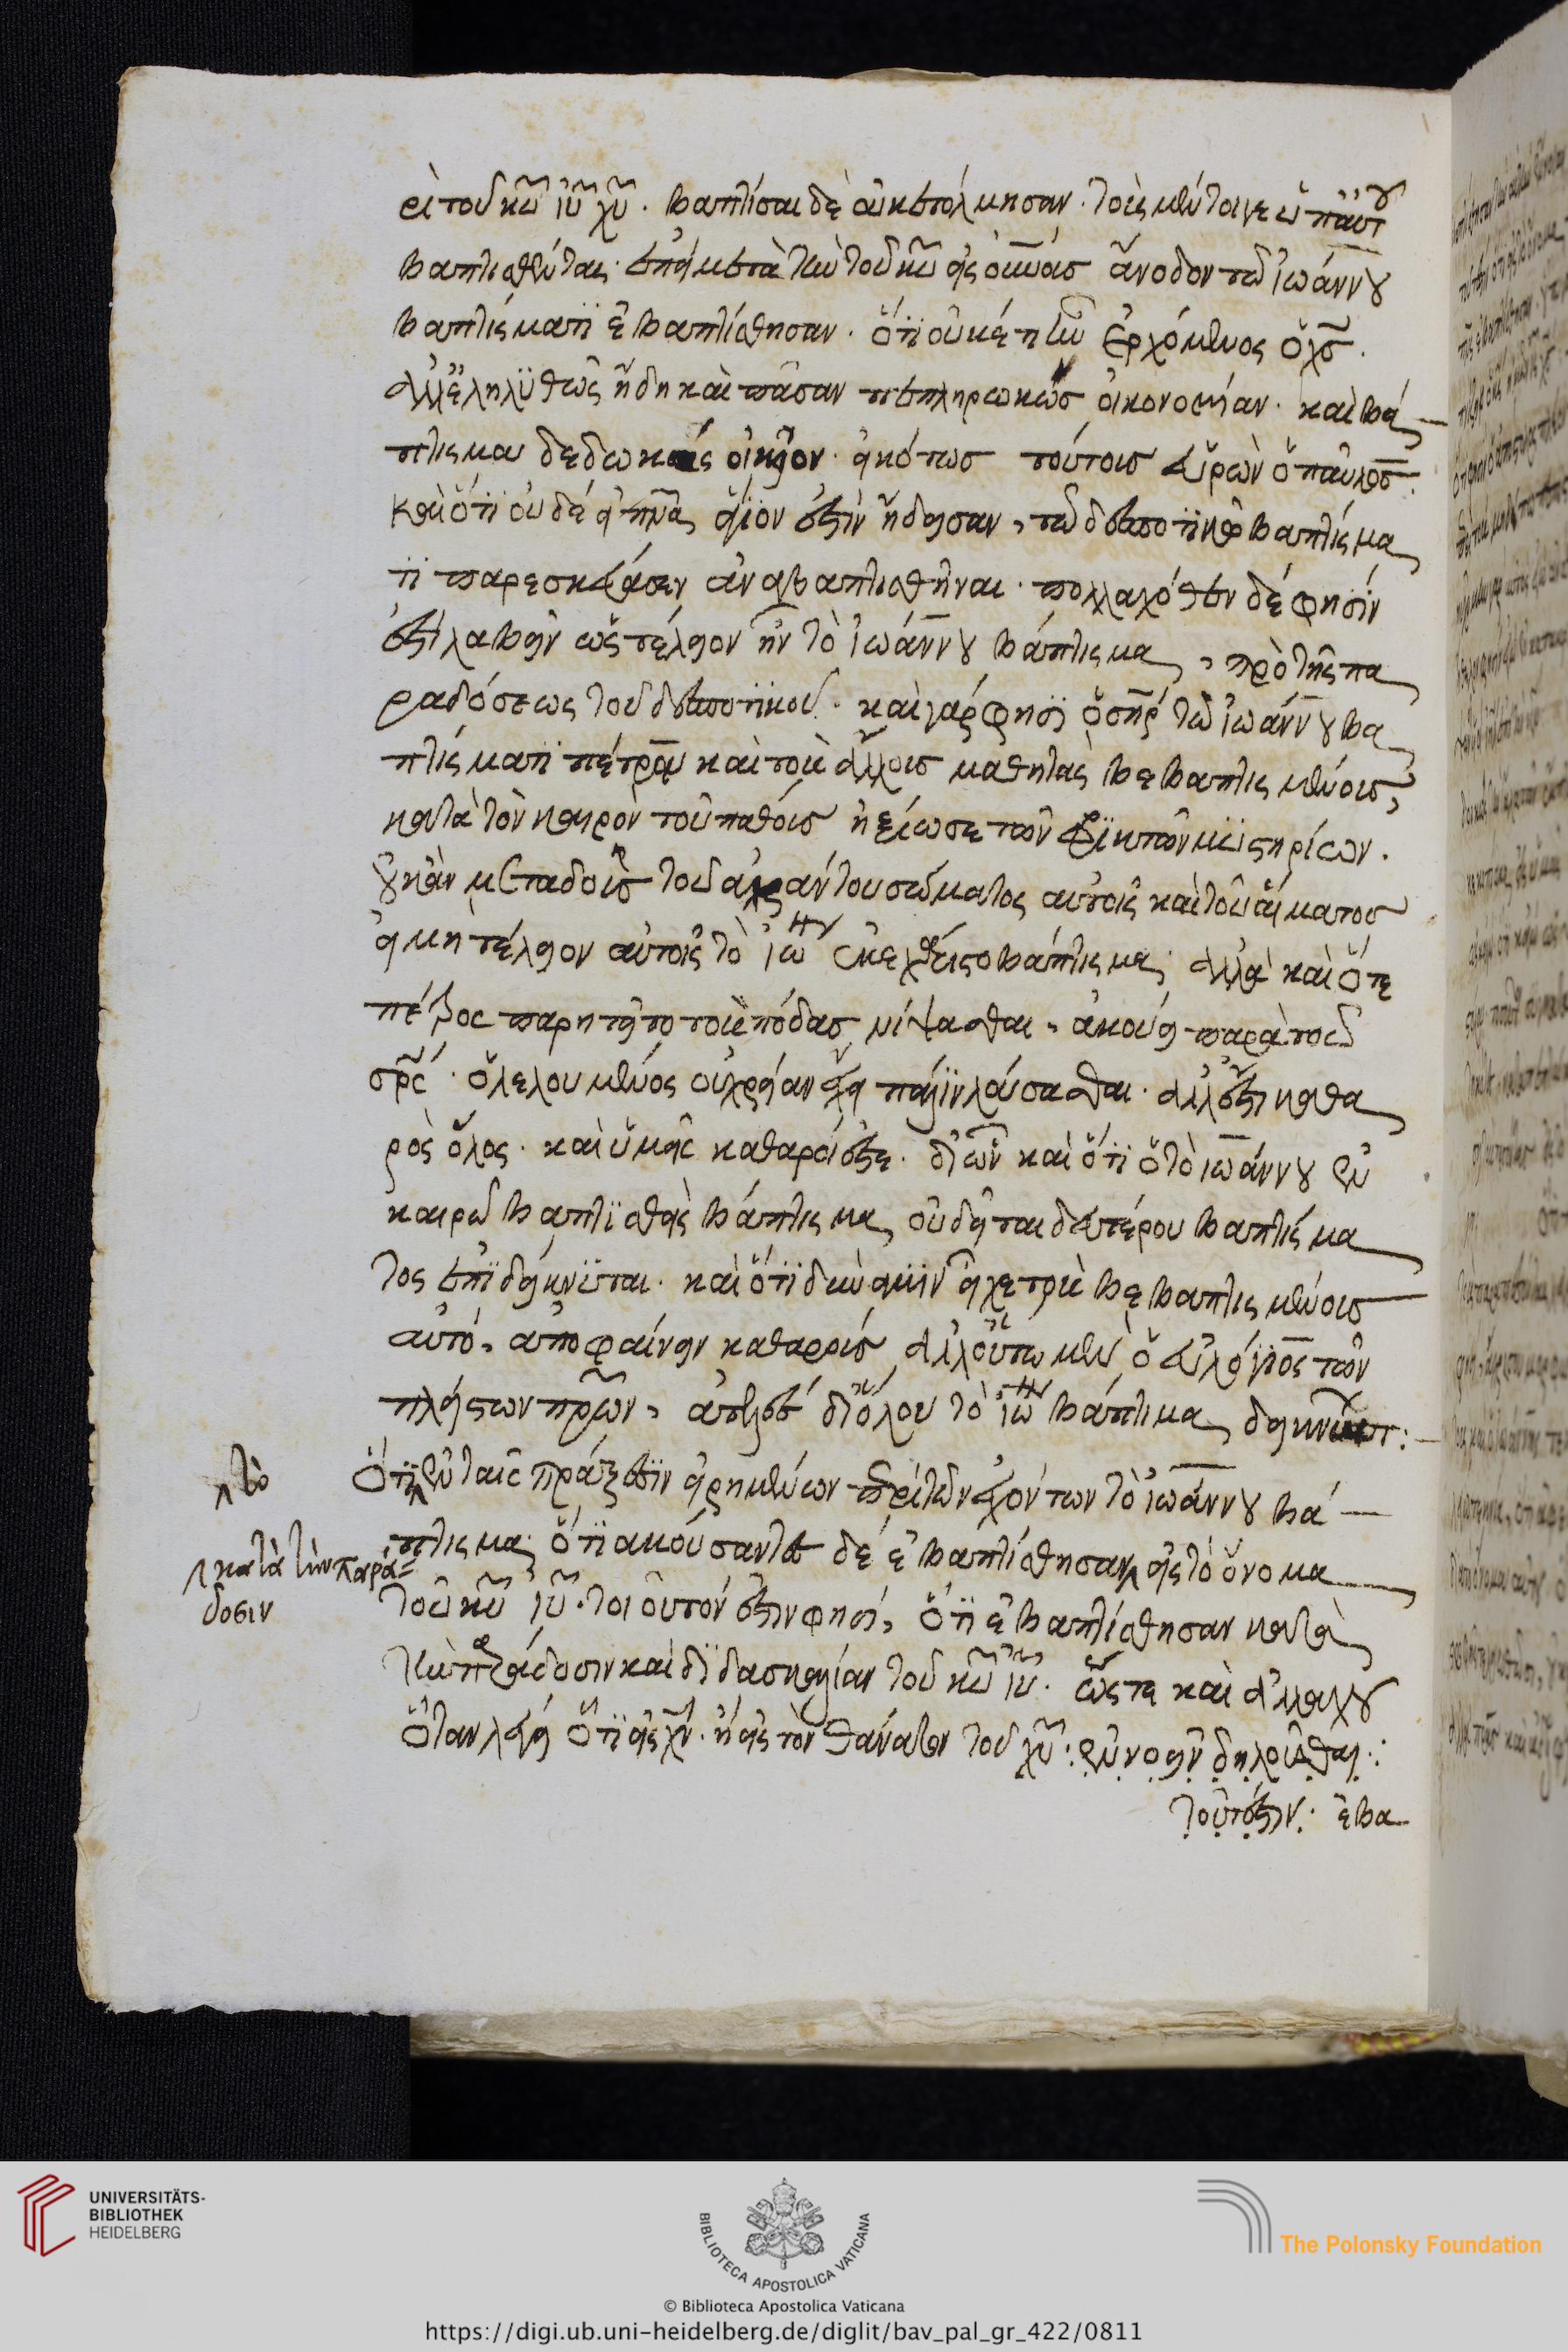 ρὶ τοῦ κῡ ἰῡ χῡ. βαπτίσαι δὲ οὐκ ἐτόλμησαν. τοὺς μέντοιγε
βαπτισθέντας. ἐπεὶ μετὰ τὴν τοῦ κῡ εἰς οὐνοὺς ἄνοδον τῶ ἰωάννου
βαπτίσματι ἐβαπτίσθησαν. ὅτι οὐκέτι ἦν ἐρχόμενος ὁ χσ.
ἀλλ' ἐληλυθὼς ἤδη καὶ πᾶσαν πεπληρωκὼς οἰκονομίαν. καὶ βά
πτισμα δεδωκὼς οἰκεῖον. εἰκότως τούτοις εὑρὼν ὁ παῦλος.
καὶ ὅτι οὐδὲ εἰ πνᾱ ἅγιον ἐστὶν ἤδεισαν, τῶ δεσποτικῶ βαπτίσμα
τι παρεσκεύασεν ἀναβαπτισθῆναι. πολλαχόθεν δέ φησίν
ἐστὶ λαβεῖν ὡς τέλειον ἦν τὸ ἰωάννου βάπτισμα, πρὸ τῆς πα
ραδόσεως τοῦ δεσποτικοῦ. καὶ γάρ φησι ὁ σηρ τῶ ἰωάννου βα
πτίσματι πέτρον καὶ τοὺς ἄλλους μαθητὰς βεβαπτισμένους,
κατὰ τὸν καιρὸν τοῦ πάθους ἠξίωσε τῶν φρικτῶν μυστηρίων.
οὐκ ἂν μεταδοὺς τοῦ ἀχράντου σώματος αὐτοῖς καὶ τοῦ αἵματος
εἰ μὴ τέλειον αὐτοῖς τὸ ἰω βάπτισμα. ἀλλὰ καὶ ὅτε
πέτρος παρητεῖτο τοὺς πόδας νίψασθαι, ἀκούει παρὰ τοῦ
σρσ. ὁ λελουμένος οὐ χρείαν ἔχει πάλιν λούσασθαι. ἀλλ' ἔστι καθα
ρὸς ὅλος. καὶ ὑμεῖς καθαροί ἐστε. δι' ὧν καὶ ὅτι ὁ τὸ ἰωάννου ἐν
καιρῶ βαπτισθεὶς βάπτισμα, οὐ δεῖται δευτέρου βαπτίσμα
τος ἐπιδείκνυται. καὶ ὅτι δύναμιν εἶχε τοὺς βεβαπτισμένους
αὐτό, ἀποφαίνειν καθαρούς. ἀλλ' οὕτω μὲν ὁ εὐλόγιος τῶν
πλείστων πρῶν, ἀτελὲς δι' ὅλου τὸ ἰω βάπτιμα δεικνύντων:
^τὸ
Ὅτι ἐν ταῖς πράξεσιν εἰρημένον περὶ τῶν ἐχόντων τὸ ἰωάννου βά
πτισμα, ὅτι ἀκούσαντες δὲ ἐβαπτίσθησαν εἰς τὸ ὄνομα
^κατὰ τὴν παρά=
δοσιν
τοῦ κῡ ἰῡ. τοιοῦτόν ἐστιν φησί, ὅτι ἐβαπτίσθησαν κατὰ
τὴν παράδοσιν καὶ διδασκαλίαν τοῦ κῡ ἰῡ. ὥστε καὶ ἀλλαχοῦ
ὅταν λέγη ὅτι εἰς χν. ἢ εἰς τὸν θάνατον τοῦ χῡ. ἐννοεῖν δηλοῦσθαι.
τοῦτέστιν. ἐβα
UNIVERSITÄTS-
BIBLIOTHEK
HEIDELBERG
BIBLIOTECA APOSTOLICA VATICANA
The Polonsky Foundation
© Biblioteca Apostolica Vaticana
https://digi.ub.uni-heidelberg.de/diglit/bav_pal_gr_422/0811